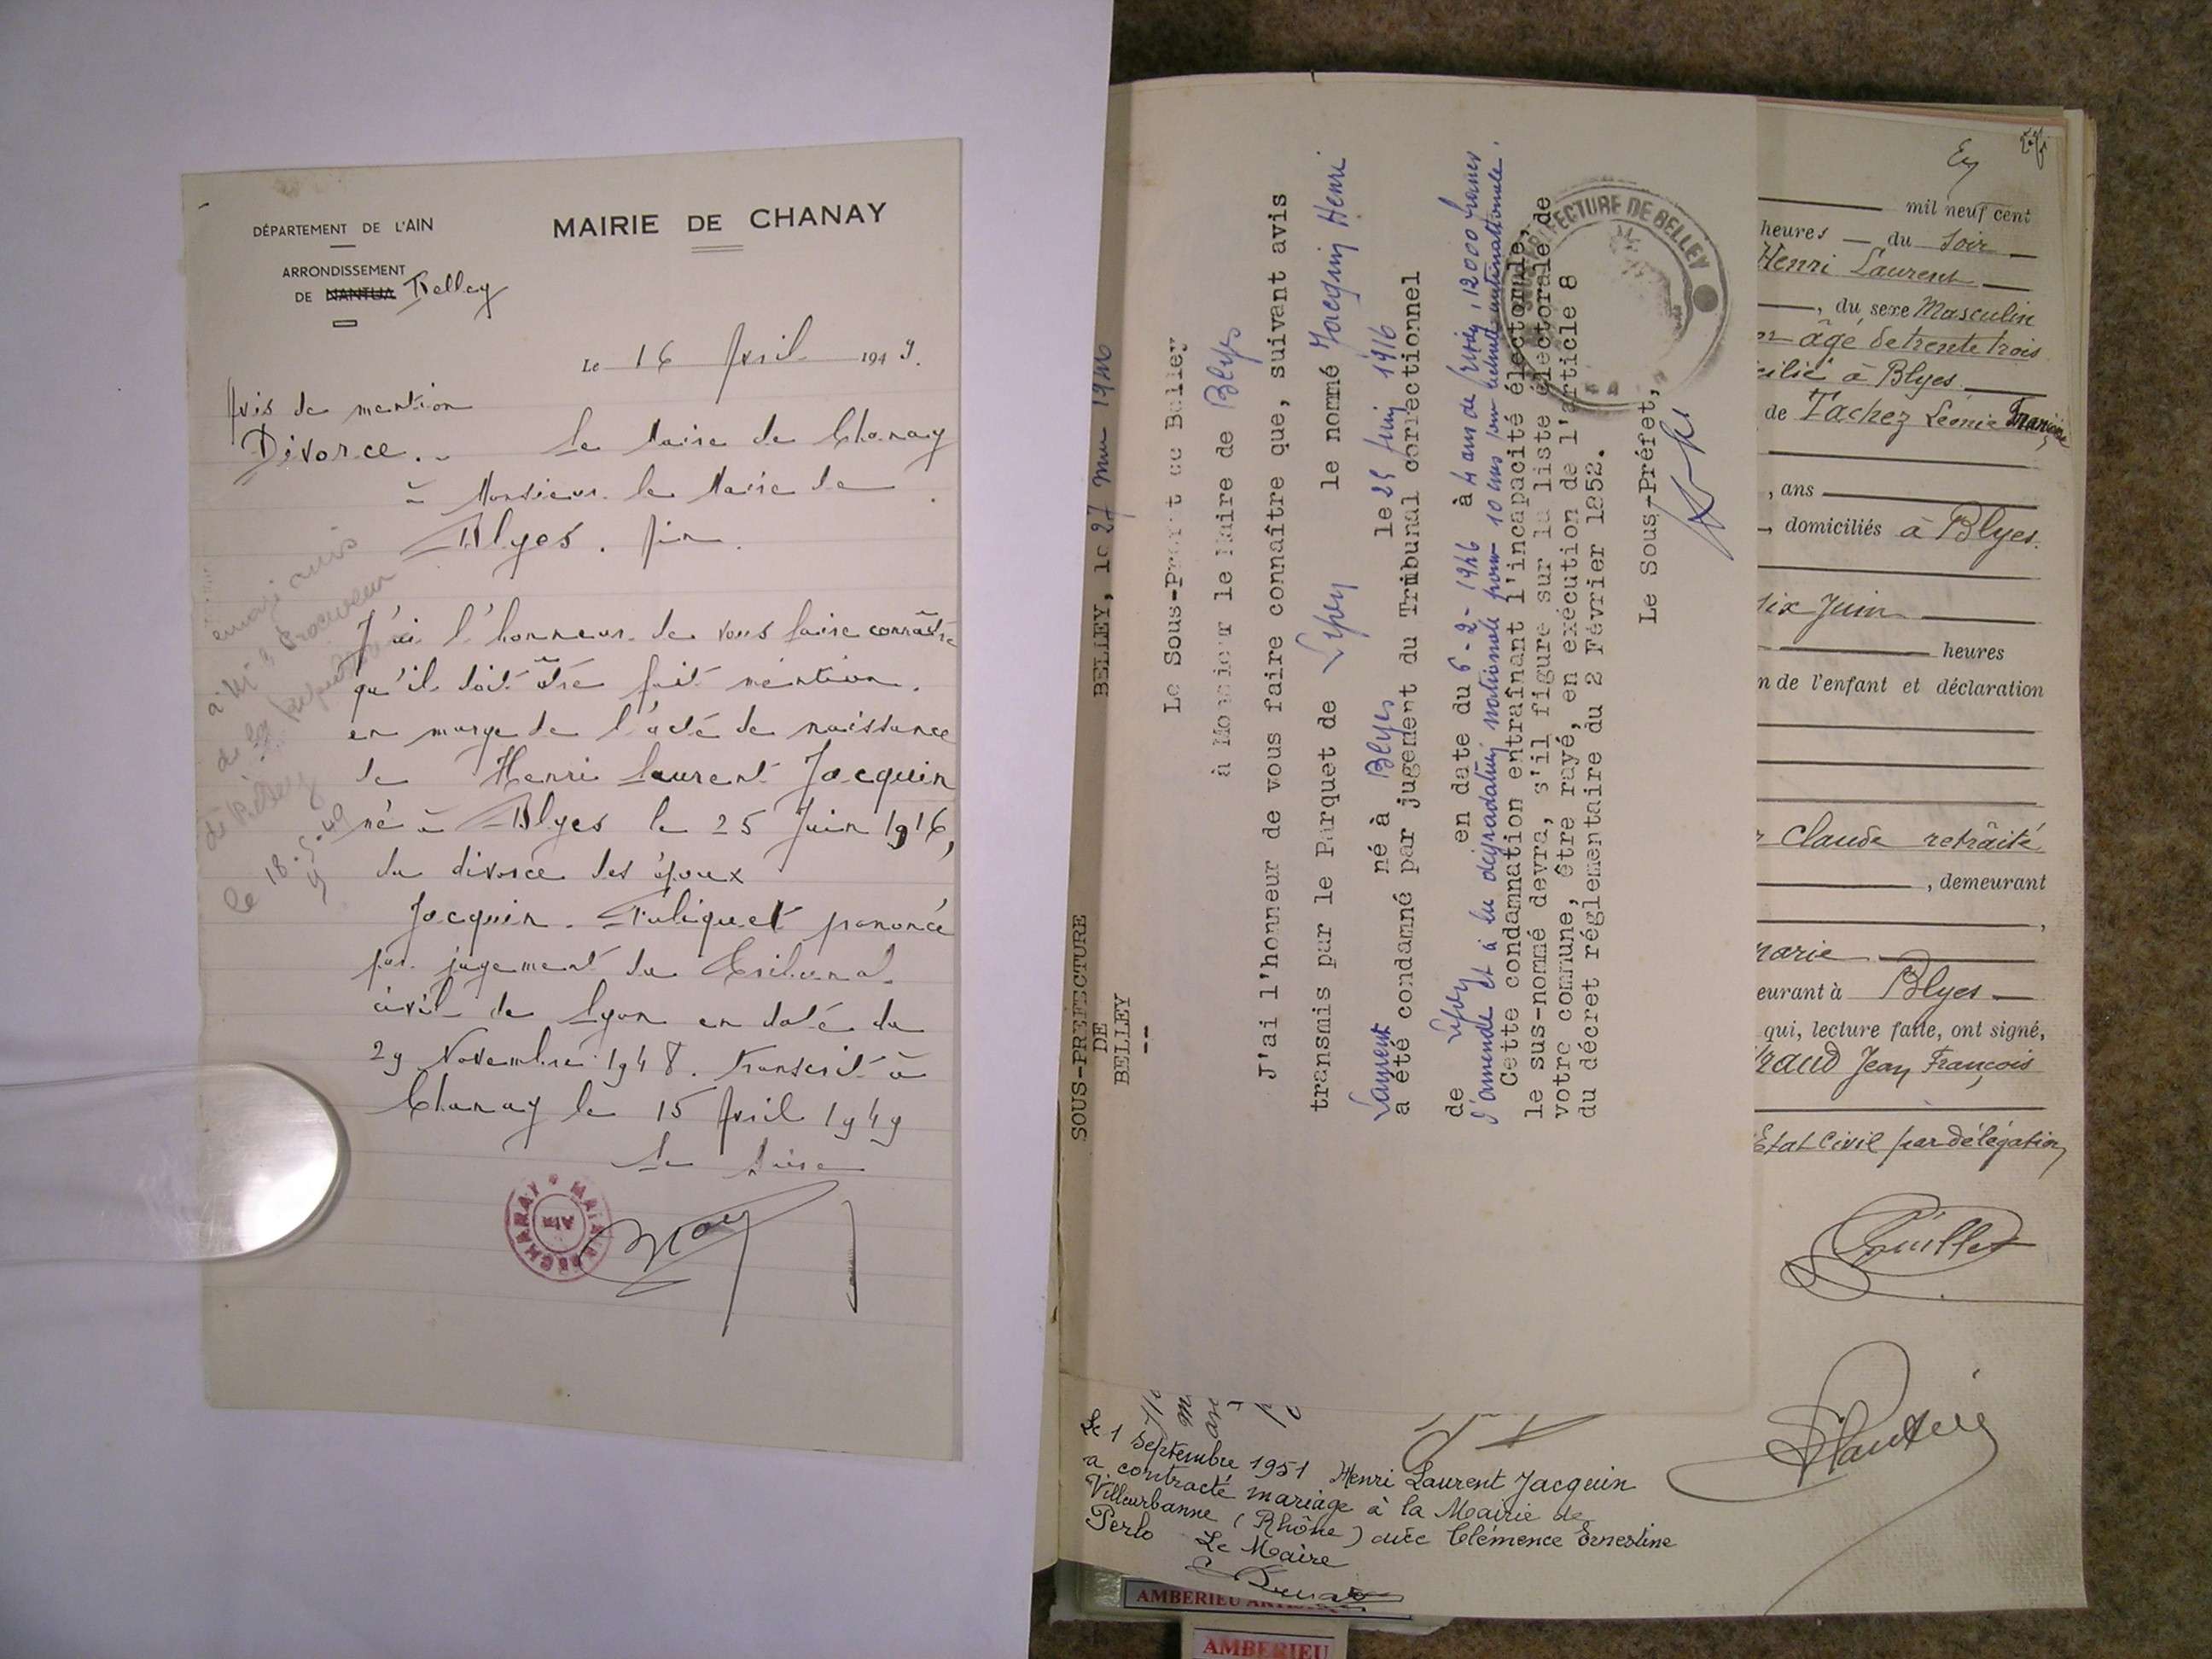 DÉPARTEMENT DE L'AIN
MAIRIE DE CHANAY
ARRONDISSEMENT
DE NANTUA Belley
Le 16 Avril 1949.
Avis de mention
Divorce..
Le Maire de Chanay
à Monsieur le Maire de
Blyes. Ain.
envoyé avis
à Mr le Procureur
de la République
de Belley
le 18.5.49
J'ai l'honneur de vous faire connaître
qu'il doit être fait mention
en marge de l'acte de naissance
de Henri Laurent Jacquin
né à Blyes le 25 Juin 1916,
du divorce des époux
Jacquin. prononcé
par jugement du Tribunal
civil de Lyon en date du
29 Novembre 1948. transcrit à
Chanay le 15 Avril 1949
Le Maire
MAIRIE DE CHANAY AIN
SOUS-PREFECTURE
DE
BELLEY
--
BELLEY, le 27 1946
Le Sous-Préfet de Belley
à Monsieur le Maire de Blyes
J'ai l'honneur de vous faire connaître que, suivant avis
transmis par le Parquet de Lyon le nommé Jacquin Henri
Laurent né à Blyes le 25 Juin 1916
a été condamné par jugement du Tribunal correctionnel
de Lyon en date du 6-2-1946 à 4 ans de prison, 12000 francs
d'amende et à la dégradation nationale pour 10 ans pour activité antinationale.
Cette condamnation entraînant l'incapacité électorale,
le sus-nommé devra, s'il figure sur la liste électorale de
votre commune, être rayé, en exécution de l'article 8
du décret réglementaire du 2 Février 1852.
Le Sous-Préfet,
SOUS-PRÉFECTURE DE BELLEY
mil neuf cent
heures — du soir —
Henri Laurent
, du sexe Masculin
âgé de trente trois
à Blyes
de Tachez Léonie Françoise
, ans
, domiciliés à Blyes.
dix Juin
heures
n de l'enfant et déclaration
Claude retraité
, demeurant
marie
eurant à Blyes
qui, lecture faite, ont signé,
Jean François
Etat Civil par délégation
Le 1 septembre 1951 Henri Laurent Jacquin
a contracté mariage à la Mairie de
Villeurbanne (Rhône) avec Clémence Ernestine
Perlo Le Maire
AMBERIEU
AMBERIEU